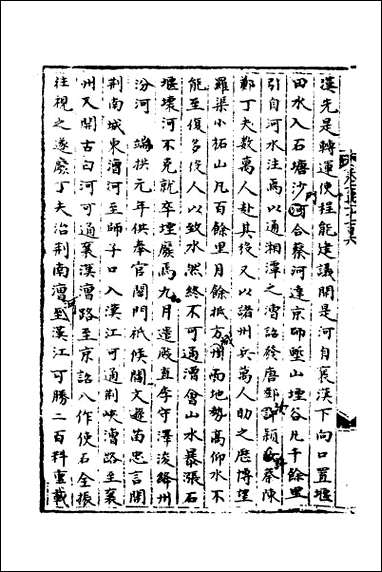 漢先是轉運使程能建議開是河自襄漢下向口置堰
回水入石塘沙河合蔡河達京師塹山堙谷凡千餘里
引白河水注焉以通湘潭之漕詔發唐鄧許潁蔡陳
鄭丁夫數萬人赴其役又以諸州兵萬人助之歷博望
羅渠小柘山凡百餘里月餘抵方城而地勢高仰水不
能至復多役人以致水然終不可通漕會山水暴漲石
堰壞河不克就卒堙廢焉九月遣殿直李守澤浚絳州
汾河 端拱元年供奉官閤門祗候閻文遜苗忠言開
荆南城東漕河至師子口入漢江可通荆峽漕路至襄
州又開古白河可通襄漢漕路至京詔八作使石全振
往視之遂發丁夫治荆南漕至漢江可勝二百料重載